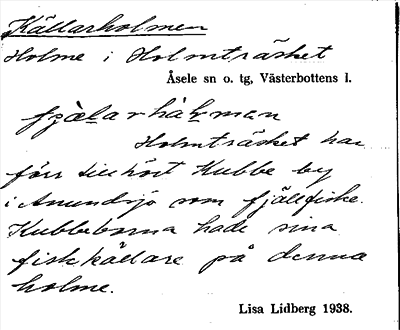 Källarholmen
Holme i Holmträsket
Åsele sn o. tg, Västerbottens l.
Holmträsket har
förr tillhört Kubbe by
i Anundsjö som fjällfiske.
Kubbeborna hade sina
fiskkällare på denna
holme.
Lisa Lidberg 1938.